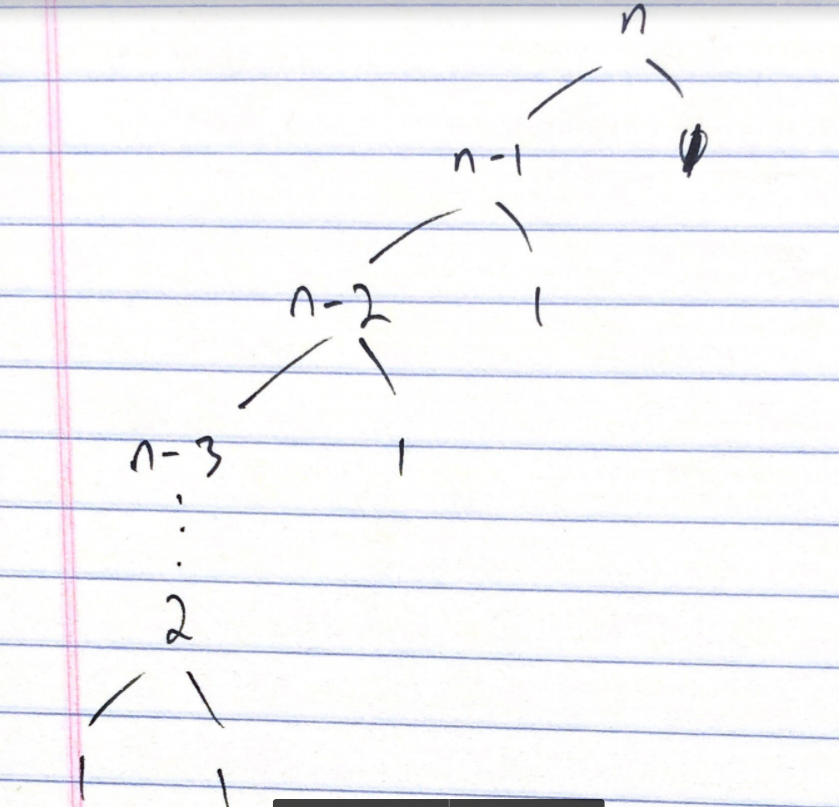 n
n-1
n-2 1
n-3 1
⋮
2
1 1